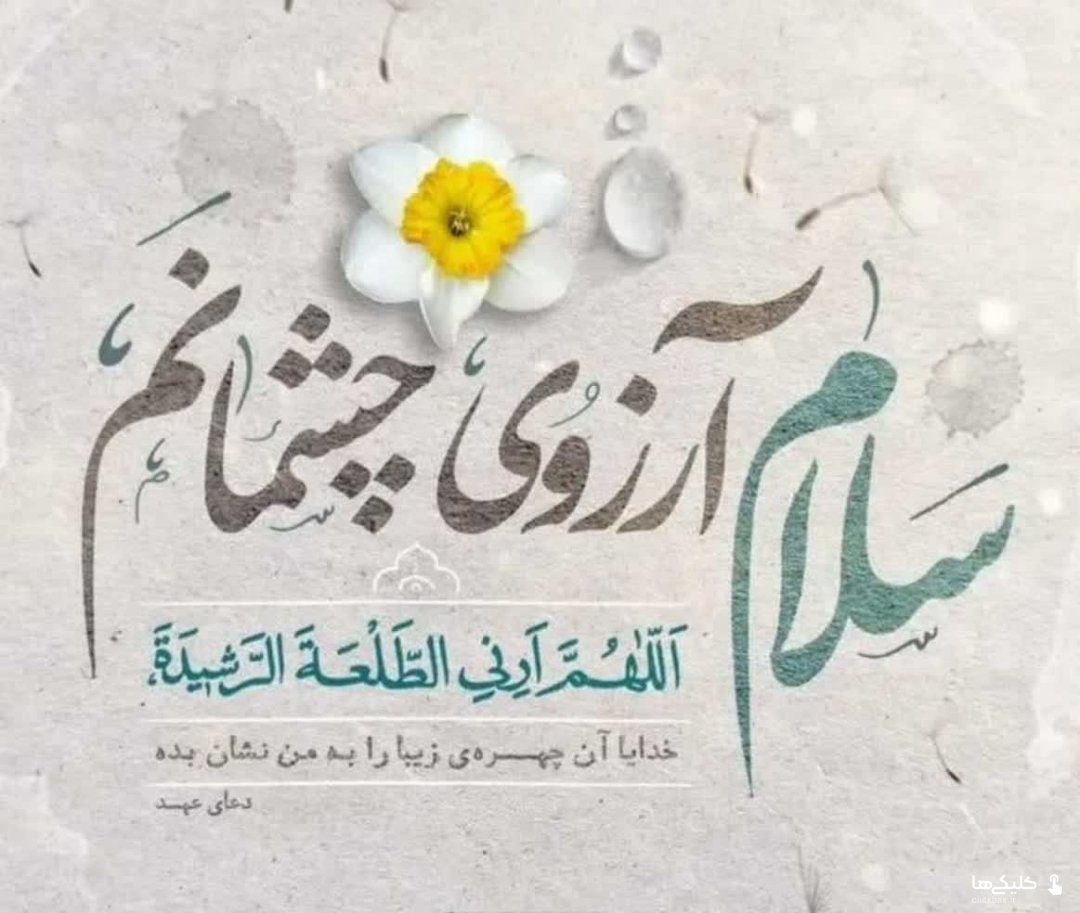 سلام آرزوی چشمانم
اَللّٰهُمَّ اَرِنیِ الطَّلْعَةَ الرَّشیدَةَ
خدایا آن چهره‌ی زیبا را به من نشان بده
دعای عهد
کلیکی‌ها